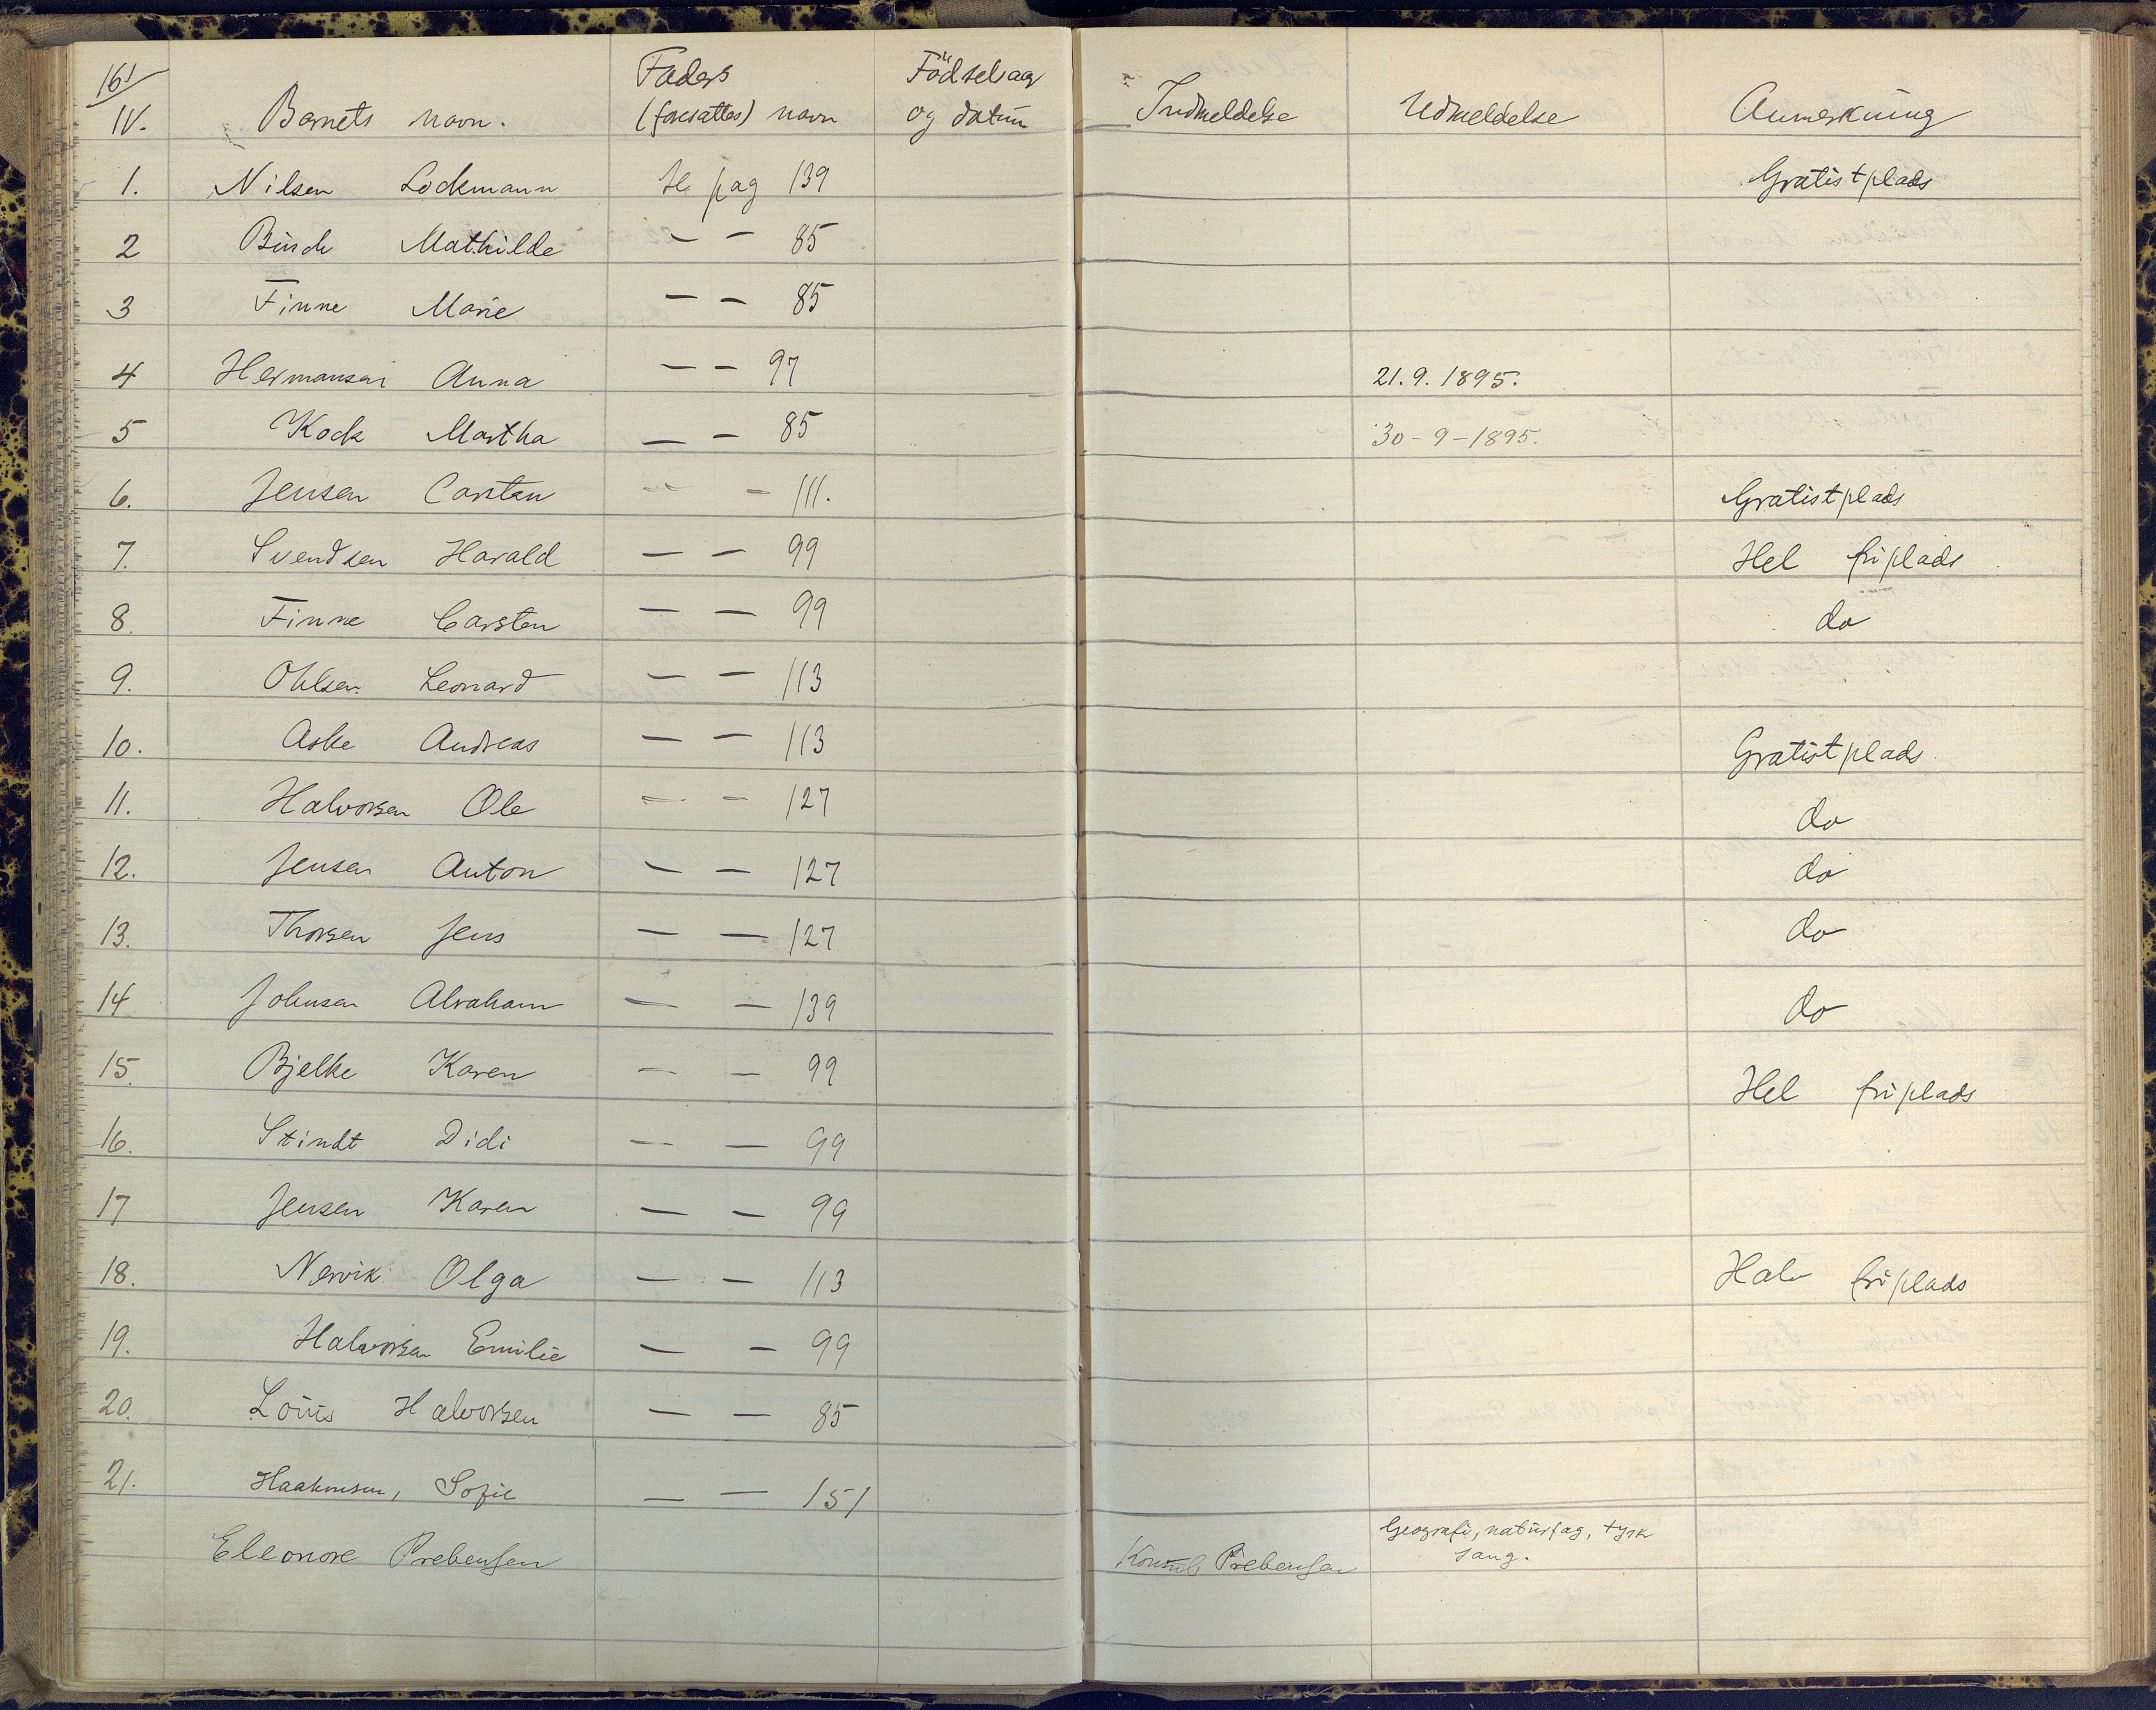 161
IV. Barnets navn. Faders (foresattes) navn Födselsaar og datum Indmeldelse Udmeldelse Anmerkning
1. Nilsen Lockmann se pag 139 Gratistplads
2 Binde Mathilde — — 85
3 Finne Marie — — 85
4 Hermansen Anna — — 97 21.9.1895.
5 Kock Martha — — 85 30-9-1895.
6. Jensen Carsten — — 111. Gratistplads
7. Svendsen Harald — — 99 Hel friplads
8. Finne Carsten — — 99 do
9. Ohlsen Leonard — — 113
10. Aske Andreas — — 113 Gratistplads
11. Halvorsen Ole — — 127 do
12. Jensen Anton — — 127 do
13. Thorsen Jens — — 127 do
14 Johnsen Abraham — — 139 do
15. Bjelke Karen — — 99 Hel friplads
16. Stindt Didi — — 99
17 Jensen Karen — — 99
18. Nervik Olga — — 113 Halv friplads
19. Halvorsen Emilie — — 99
20. Louis Halvorsen — — 85
21. Haakonsen, Sofie — — 151
Eleonore Prebensen Konsul Prebensen Geografi, naturfag, tysk
sang.